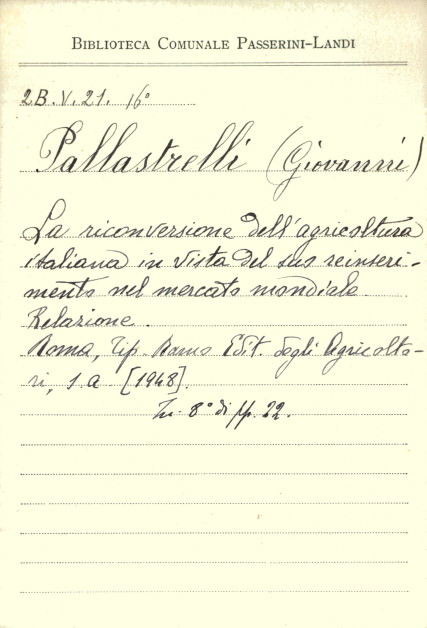 BIBLIOTECA COMUNALE PASSERINI-LANDI
2B.V.21. 16°
Pallastrelli (Giovanni)
La riconversione dell'agricoltura
italiana in vista del suo reinseri-
mento nel mercato mondiale.
Relazione.
Roma, Tip. Ramo Edit. degli Agricolto-
ri, s.a [1948].
In-8° di pp. 22.